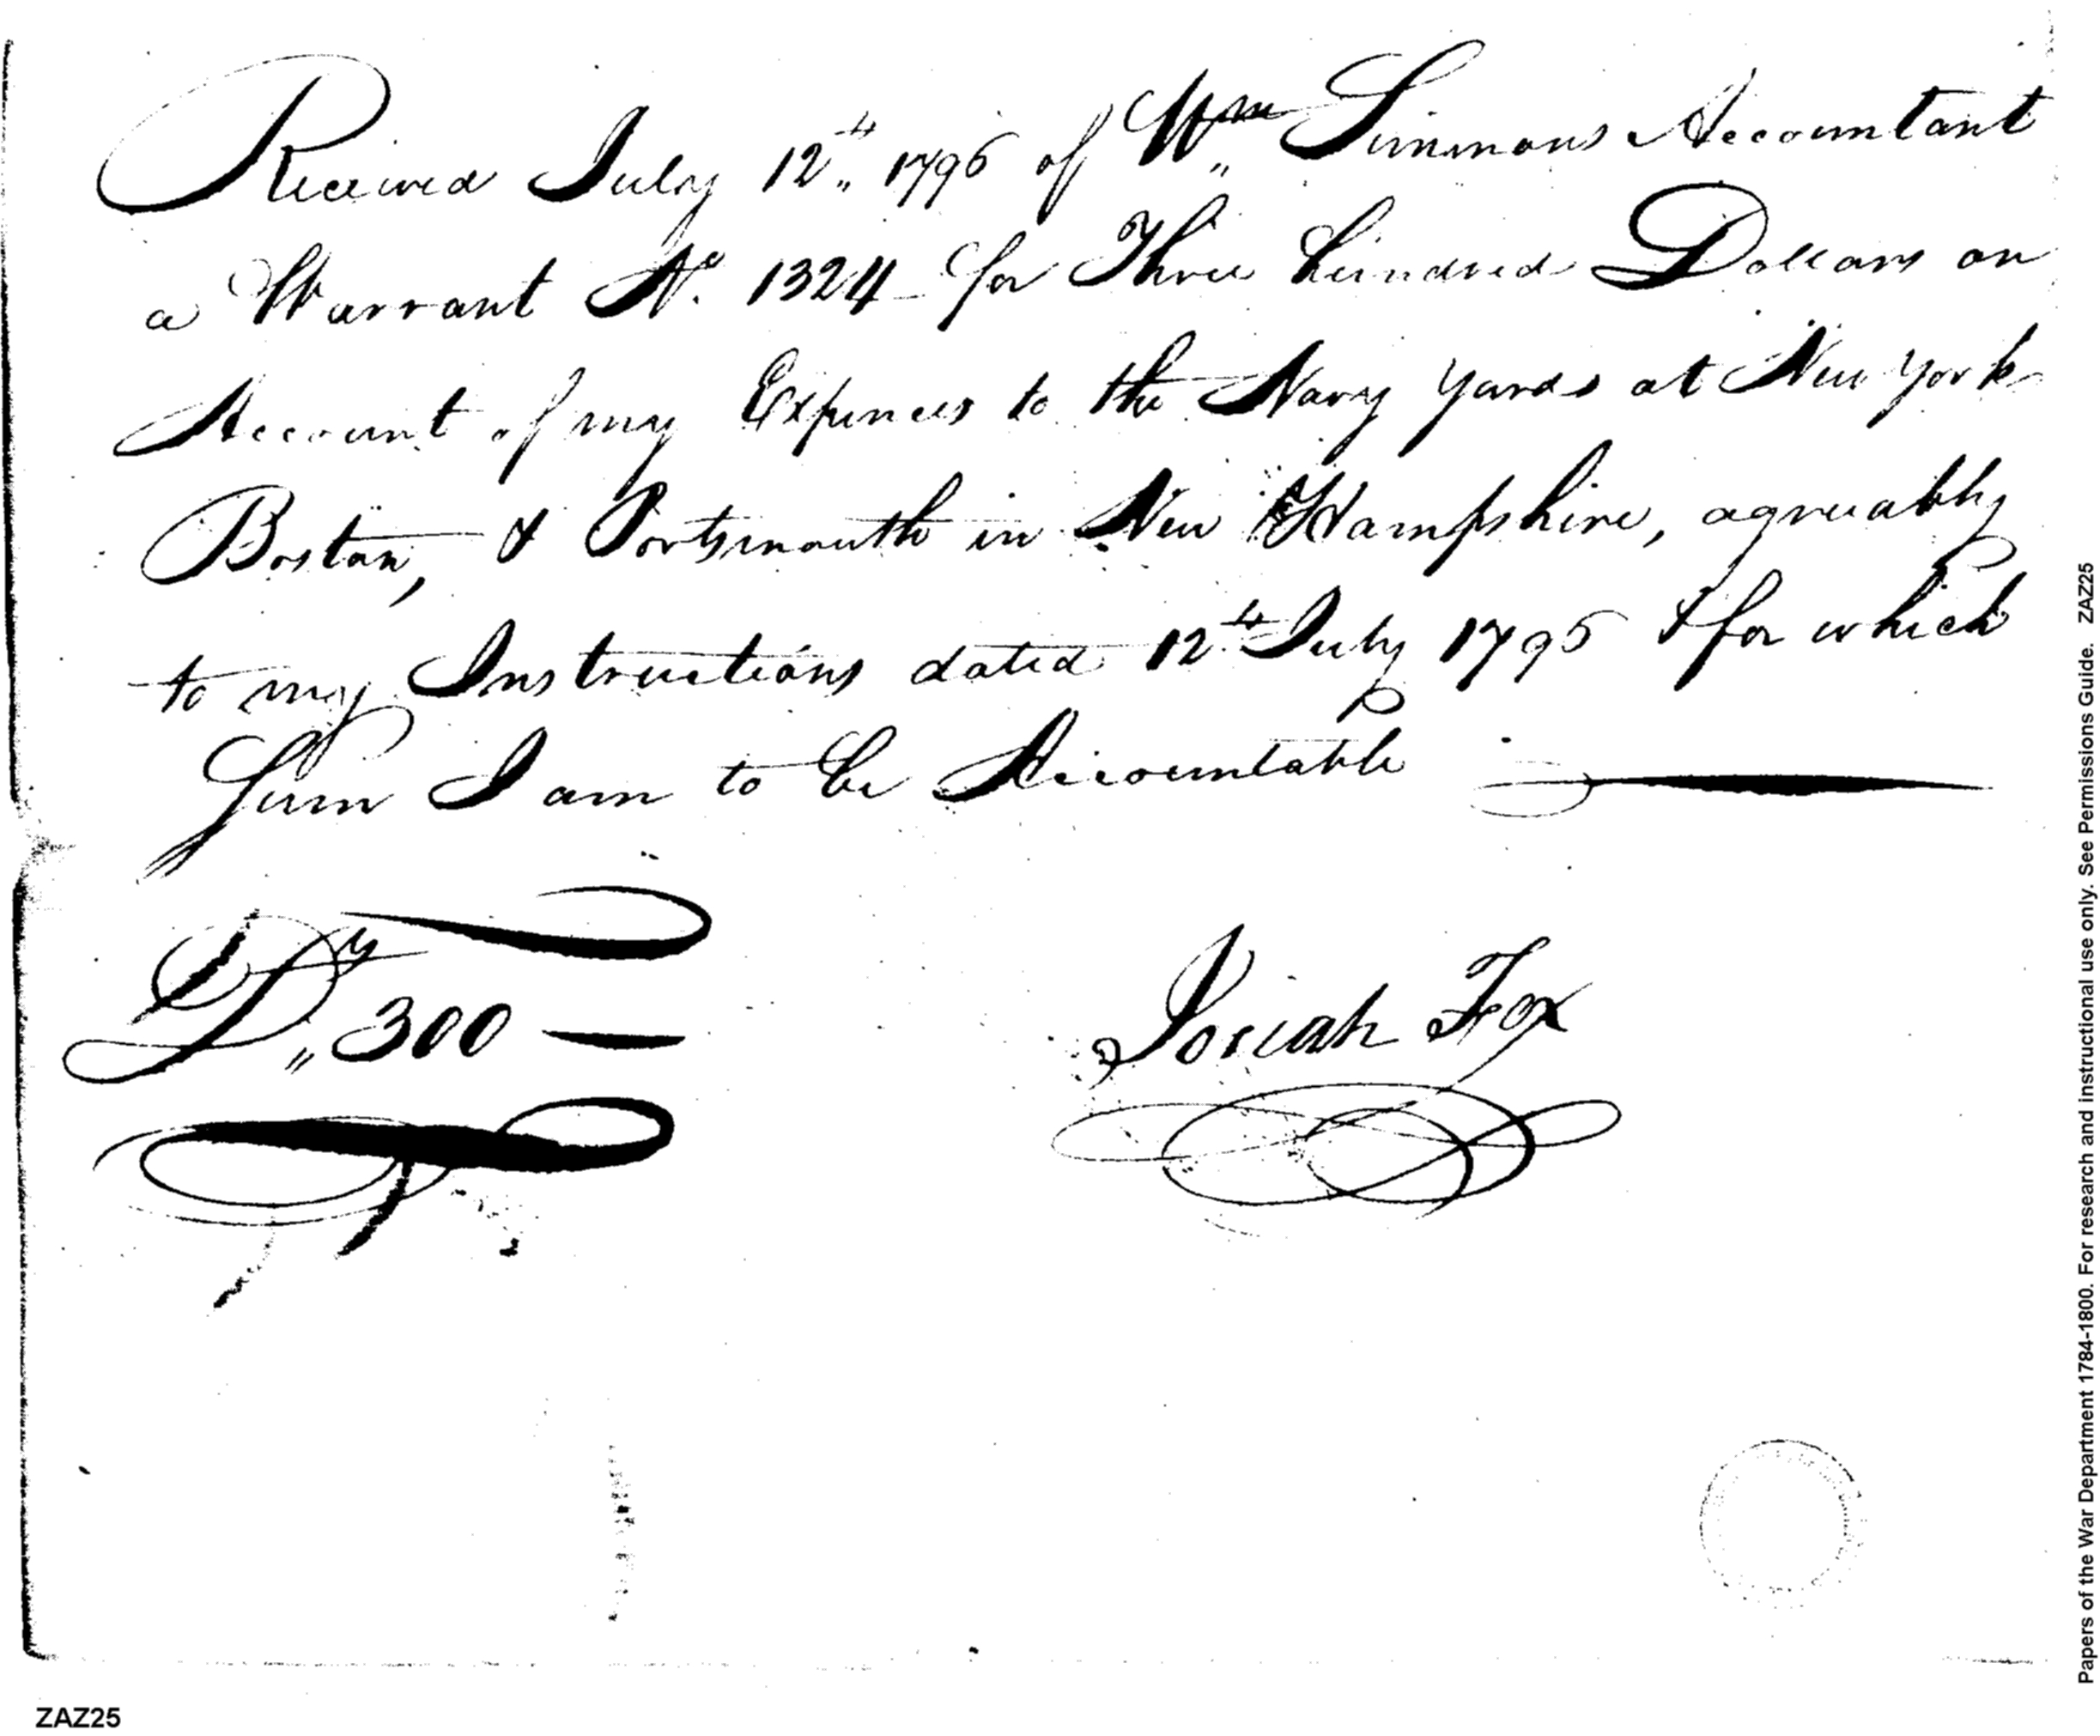 Received July 12th 1796 of Wm Simmons Accountant
a Warrant No. 1324 - for Three hundred Dollars on
Account of my Expences to the Navy Yards at New York
Boston, & Portsmouth in New Hampshire, agreeably
to my Instructions dated 12th July 1796 & for which
Sum I am to be Accountable
300 —
Josiah Fox
ZAZ25
Papers of the War Department 1784-1800. For research and instructional use only. See Permissions Guide. ZAZ25